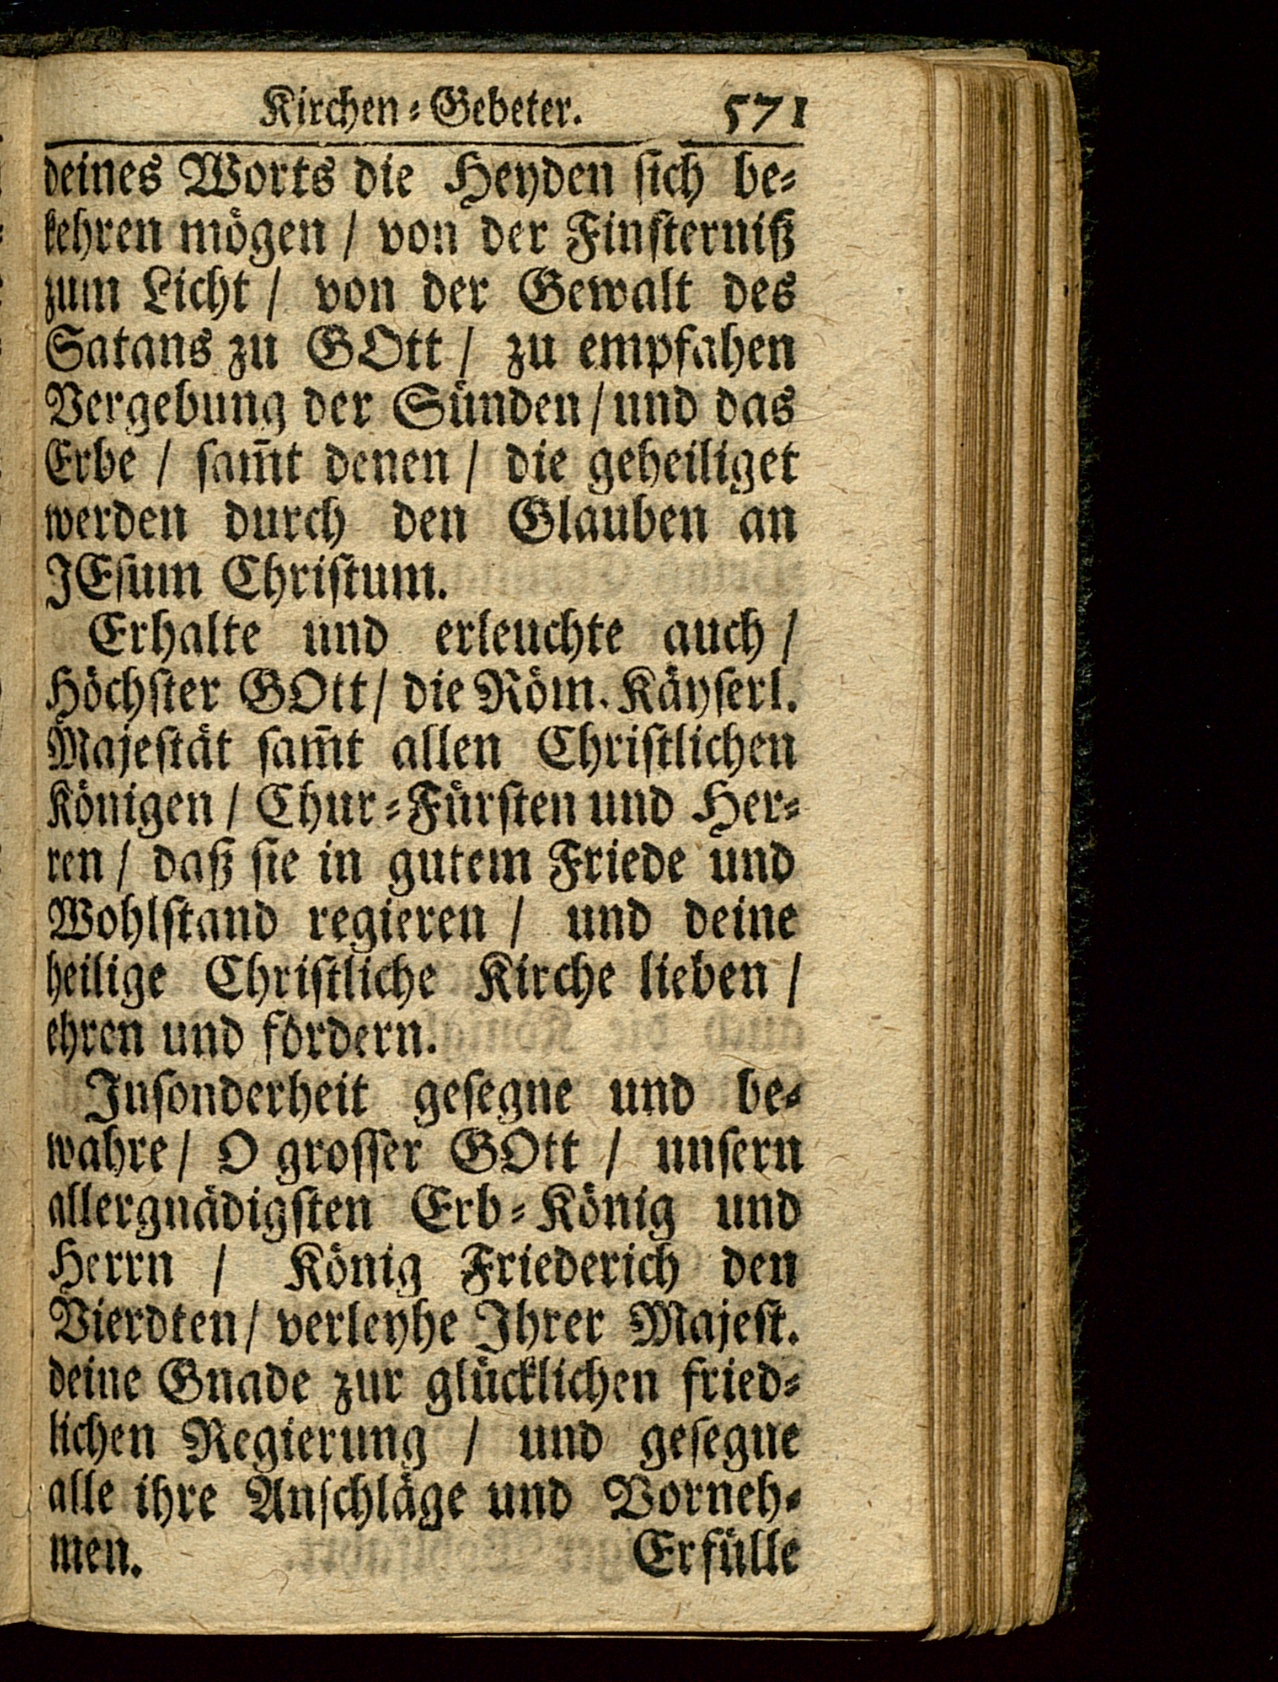 Kirchen-Gebeter. 571
deines Worts die Heyden sich be-
kehren mögen / von der Finsterniß
zum Licht / von der Gewalt des
Satans zu GOtt / zu empfahen
Vergebung der Sünden / und das
Erbe / sam̃t denen / die geheiliget
werden durch den Glauben an
JEsum Christum.
Erhalte und erleuchte auch /
Höchster GOtt / die Röm. Käyserl.
Majestät sam̃t allen Christlichen
Königen / Chur-Fürsten und Her-
ren / daß sie in gutem Friede und
Wohlstand regieren / und deine
heilige Christliche Kirche lieben /
ehren und fördern.
Insonderheit gesegne und be-
wahre / O grosser GOtt / unsern
allergnädigsten Erb-König und
Herrn / König Friederich den
Vierdten / verleyhe Ihrer Majest.
deine Gnade zur glücklichen fried-
lichen Regierung / und gesegne
alle ihre Anschläge und Vorneh-
men. Erfülle